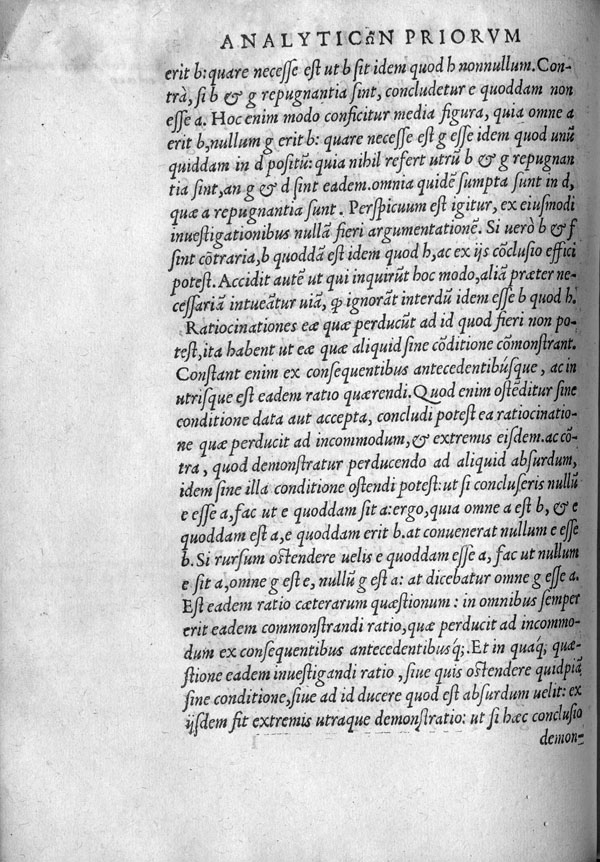 ANALYTICΩ̃N PRIORVM
erit b: quare necesse est ut b sit idem quod h nonnullum. Con-
trà, si b & g repugnantia sint, concludetur e quoddam non
esse a. Hoc enim modo conficitur media figura, quia omne a
erit b, nullum g erit b: quare necesse est g esse idem quod unũ
quiddam in d positũ: quia nihil refert utrũ b & g repugnan
tia sint, an g & d sint eadem. omnia quidẽ sumpta sunt in d,
quæ a repugnantia sunt. Perspicuum est igitur, ex eiusmodi
inuestigationibus nullã fieri argumentationẽ. Si uerò b & f
sint cõtraria, b quoddã est idem quod h, ac ex ijs cõclusio effici
potest. Accidit autẽ ut qui inquirũt hoc modo, aliã præter ne-
cessariã intueãtur uiã, ꝙ ignorãt interdũ idem esse b quod h.
Ratiocinationes eæ quæ perducũt ad id quod fieri non po-
test, ita habent ut eæ quæ aliquid sine cõditione cõmonstrant.
Constant enim ex consequentibus antecedentibúsque, ac in
utrisque est eadem ratio quærendi. Quod enim ostẽditur sine
conditione data aut accepta, concludi potest ea ratiocinatio-
ne quæ perducit ad incommodum, & extremis eisdem. ac cõ-
tra, quod demonstratur perducendo ad aliquid absurdum,
idem sine illa conditione ostendi potest: ut si concluseris nullũ
e esse a, fac ut e quoddam sit a: ergo, quia omne a est b, & e
quoddam est a, e quoddam erit b. at conuenerat nullum e esse
b. Si rursum ostendere uelis e quoddam esse a, fac ut nullum
e sit a, omne g est e, nullũ g est a: at dicebatur omne g esse a.
Est eadem ratio cæterarum quæstionum: in omnibus semper
erit eadem commonstrandi ratio, quæ perducit ad incommo-
dum ex consequentibus antecedentibusq́;. Et in quaq́; quæ-
stione eadem inuestigandi ratio, siue quis ostendere quidpiã
sine conditione, siue ad id ducere quod est absurdum uelit: ex
ijsdem fit extremis utraque demonstratio: ut si hæc conclusio
demon-